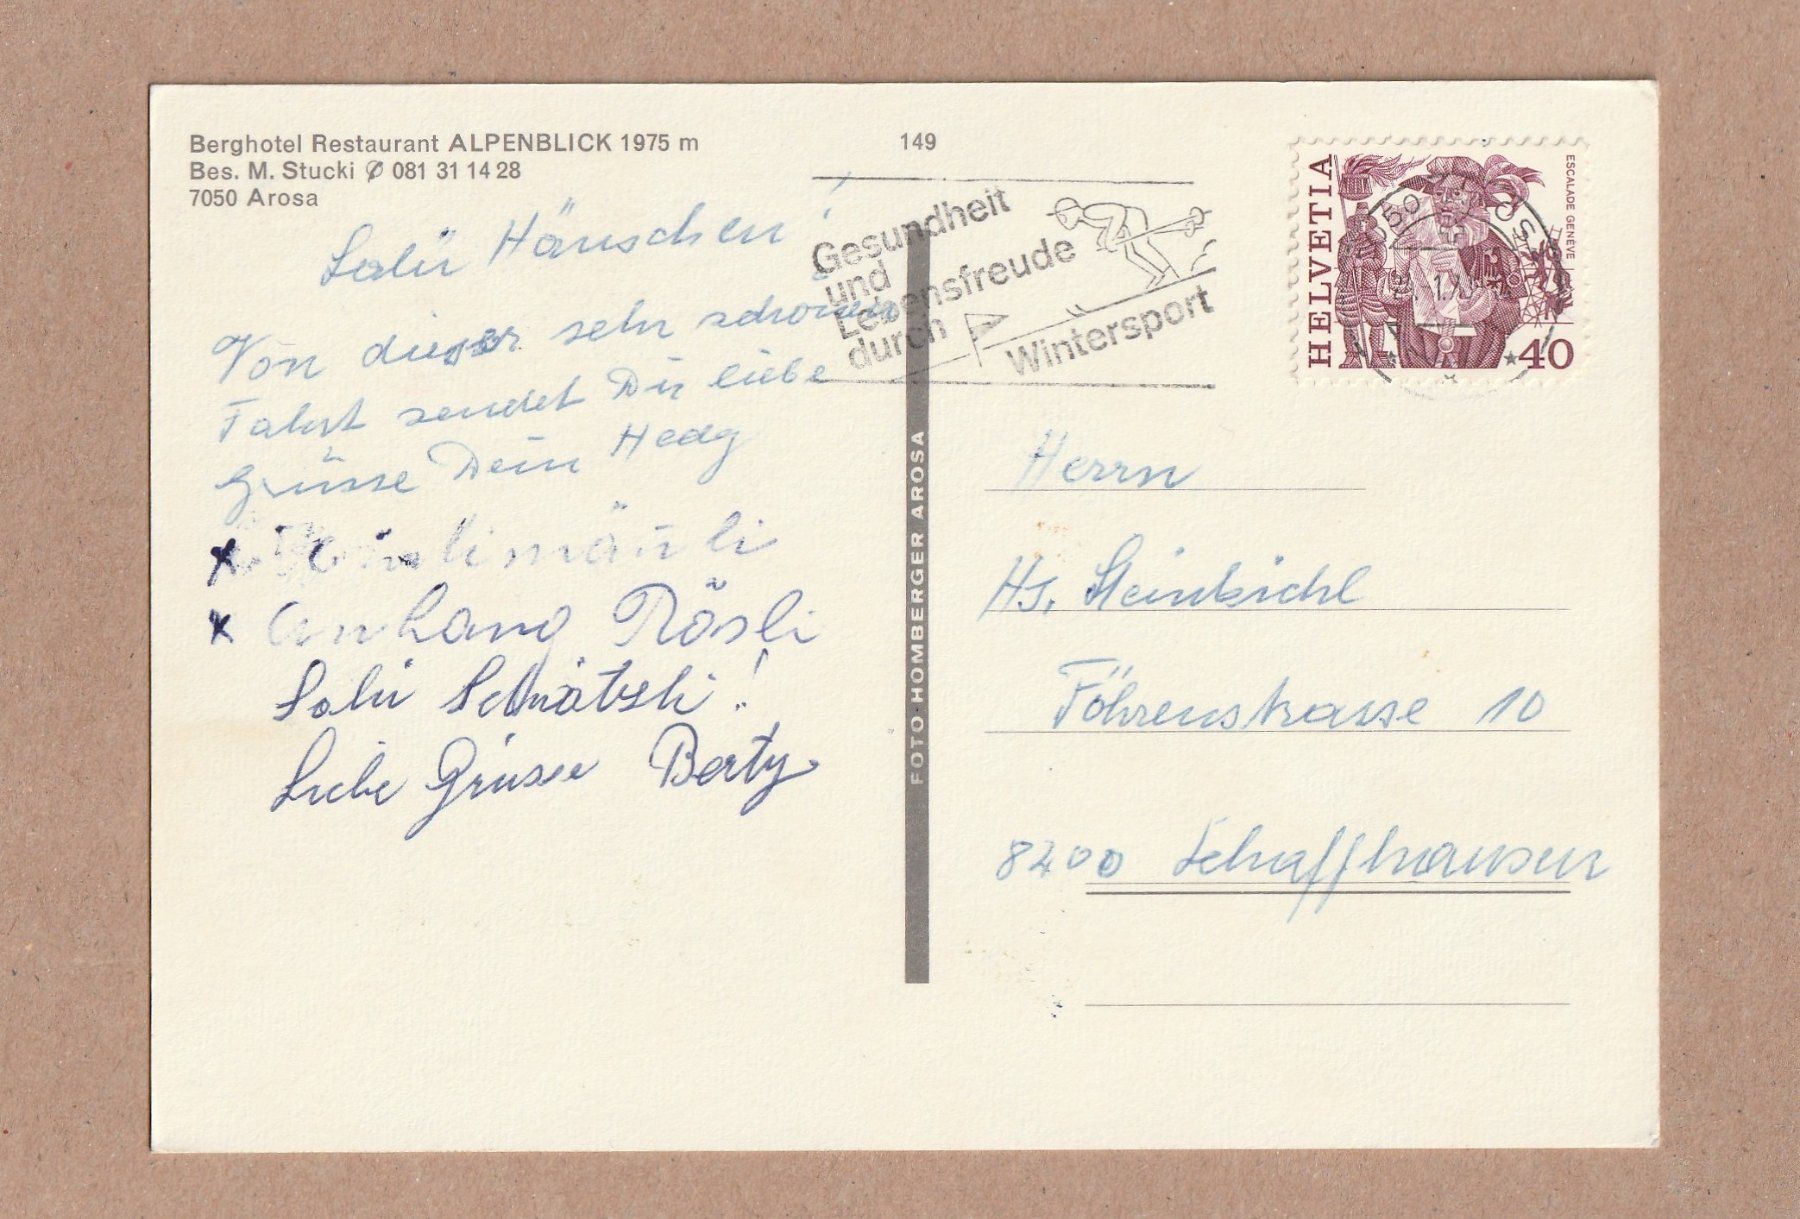 Berghotel Restaurant ALPENBLICK 1975 m
Bes. M. Stucki ✆ 081 31 14 28
7050 Arosa
149
Salü Häuschen!
Von dieser sehr schönen
Fahrt sendet Dir liebe
Grüsse Dein Hedy
x
x Anhang Rösli
Salü Schätzli!
Liebe Grüsse Berty
FOTO HOMBERGER AROSA
Gesundheit
und
Lebensfreude
durch
Wintersport
HELVETIA
ESCALADE GENÈVE
40
Herrn
Hs.
Föhrenstrasse 10
8200 Schaffhausen